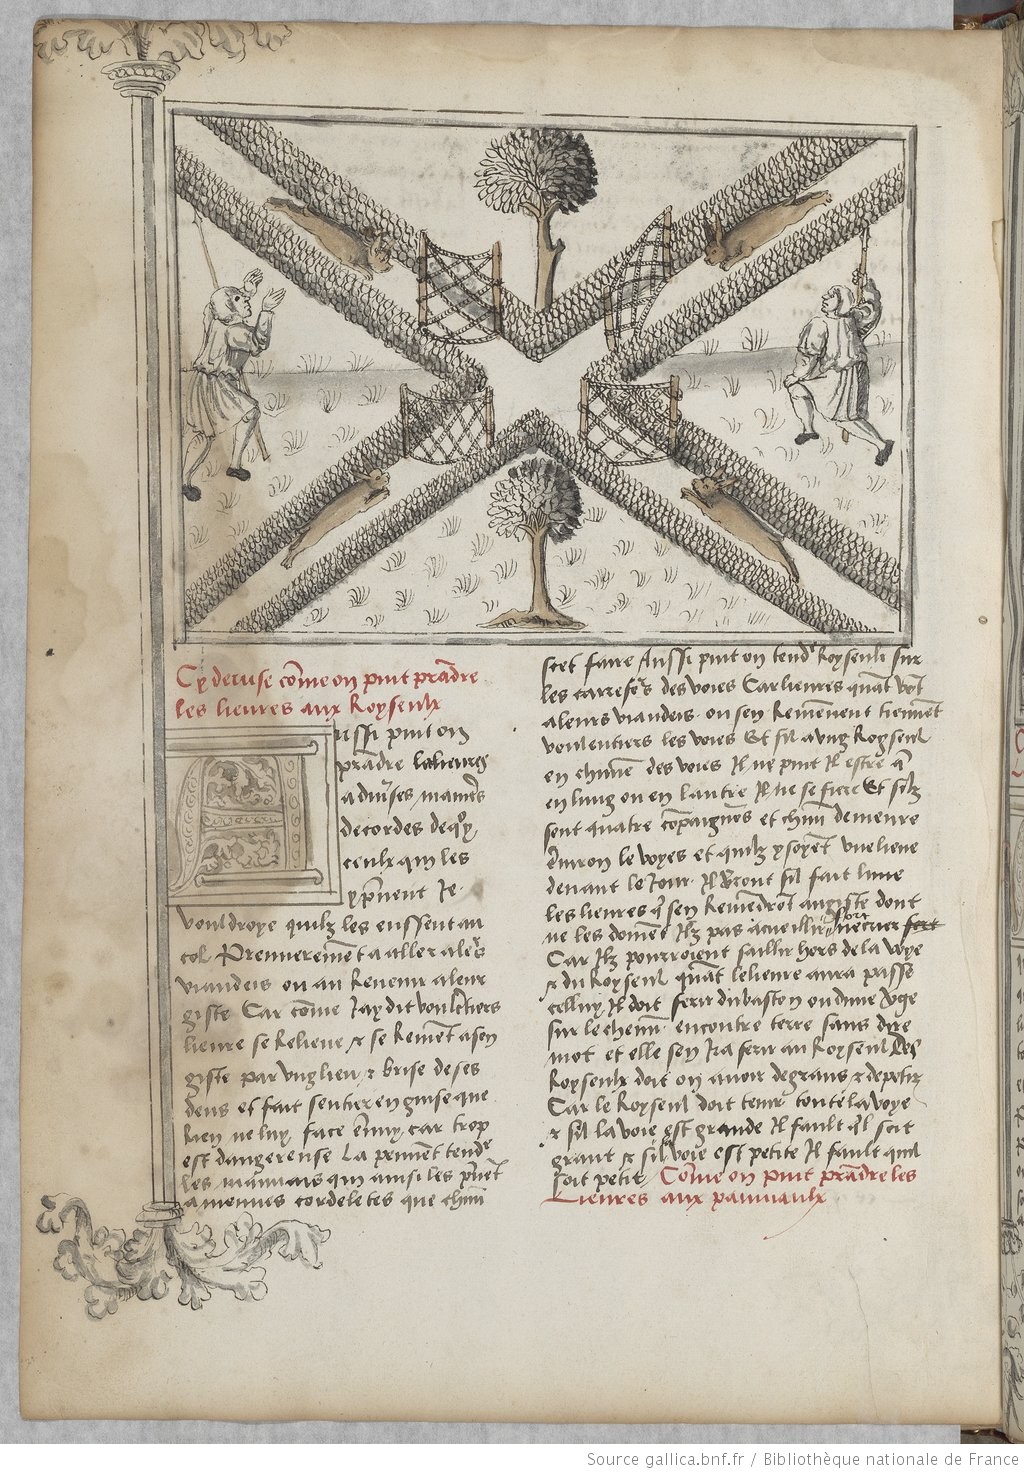 Cy devise cõme on puit prãdre
les lieures aux Royseulx
Aussi puit on
prãdre les lieures
a diuses maniers
de cordes de quoy
ceulx qui les
prẽnent Je
vouldroye quilz les eussent au
col Premieremẽt a aller a leurs
viandeis ou au Reuenir a leur
giste Car cõme Jay dit voulẽtiers
lieure se Relieue & se Remẽt a son
giste par ung lieu & brise de ses
dens et fait sentier en guise que
Rien ne luy face ẽnuy car trop
est dangereuse La prẽnent tendr
les mauuais qui ainsi les prẽnẽt
a menues cordeletes que chũn
scet faire Aussi puit on tendr Royseul sur
les carrefors des voies Car lieures quãt võt
a leurs viandeis ou sen Remẽnent tiennẽt
voulentiers les voies Et sil a ung Royseul
en chũne des voies Il ne puit Il estre
en lung ou en lautre Il ne se fiere Et silz
sont quatre cõpaignõs et chũn demeure
ẽuiron le voyes et quilz y soyẽt une lieue
deuant le Jour Il sil fait lune
les lieures q̃ sen Remẽdrõt au giste dont
ne les doiuẽt Ilz pas acueillir ne crier fort
Car Ilz pourroient saillir hors de la voye
& du Royseul quãt le lieure aura passe
celluy Il doit ferir du baston ou dune verge
sur le chemĩ encontre terre sans dire
mot et elle sen Ira ferir au Royseul Des
Royseulx doit on auoir de grans & de petiz
Car le Royseul doit tenir toute la voye
& sil la voie est grande Il fault q̃l soit
grant & sil voie est petite Il fault quil
soit petit Cõme on puit prãdre les
Lieures aux panneaulx
Source gallica.bnf.fr / Bibliothèque nationale de France